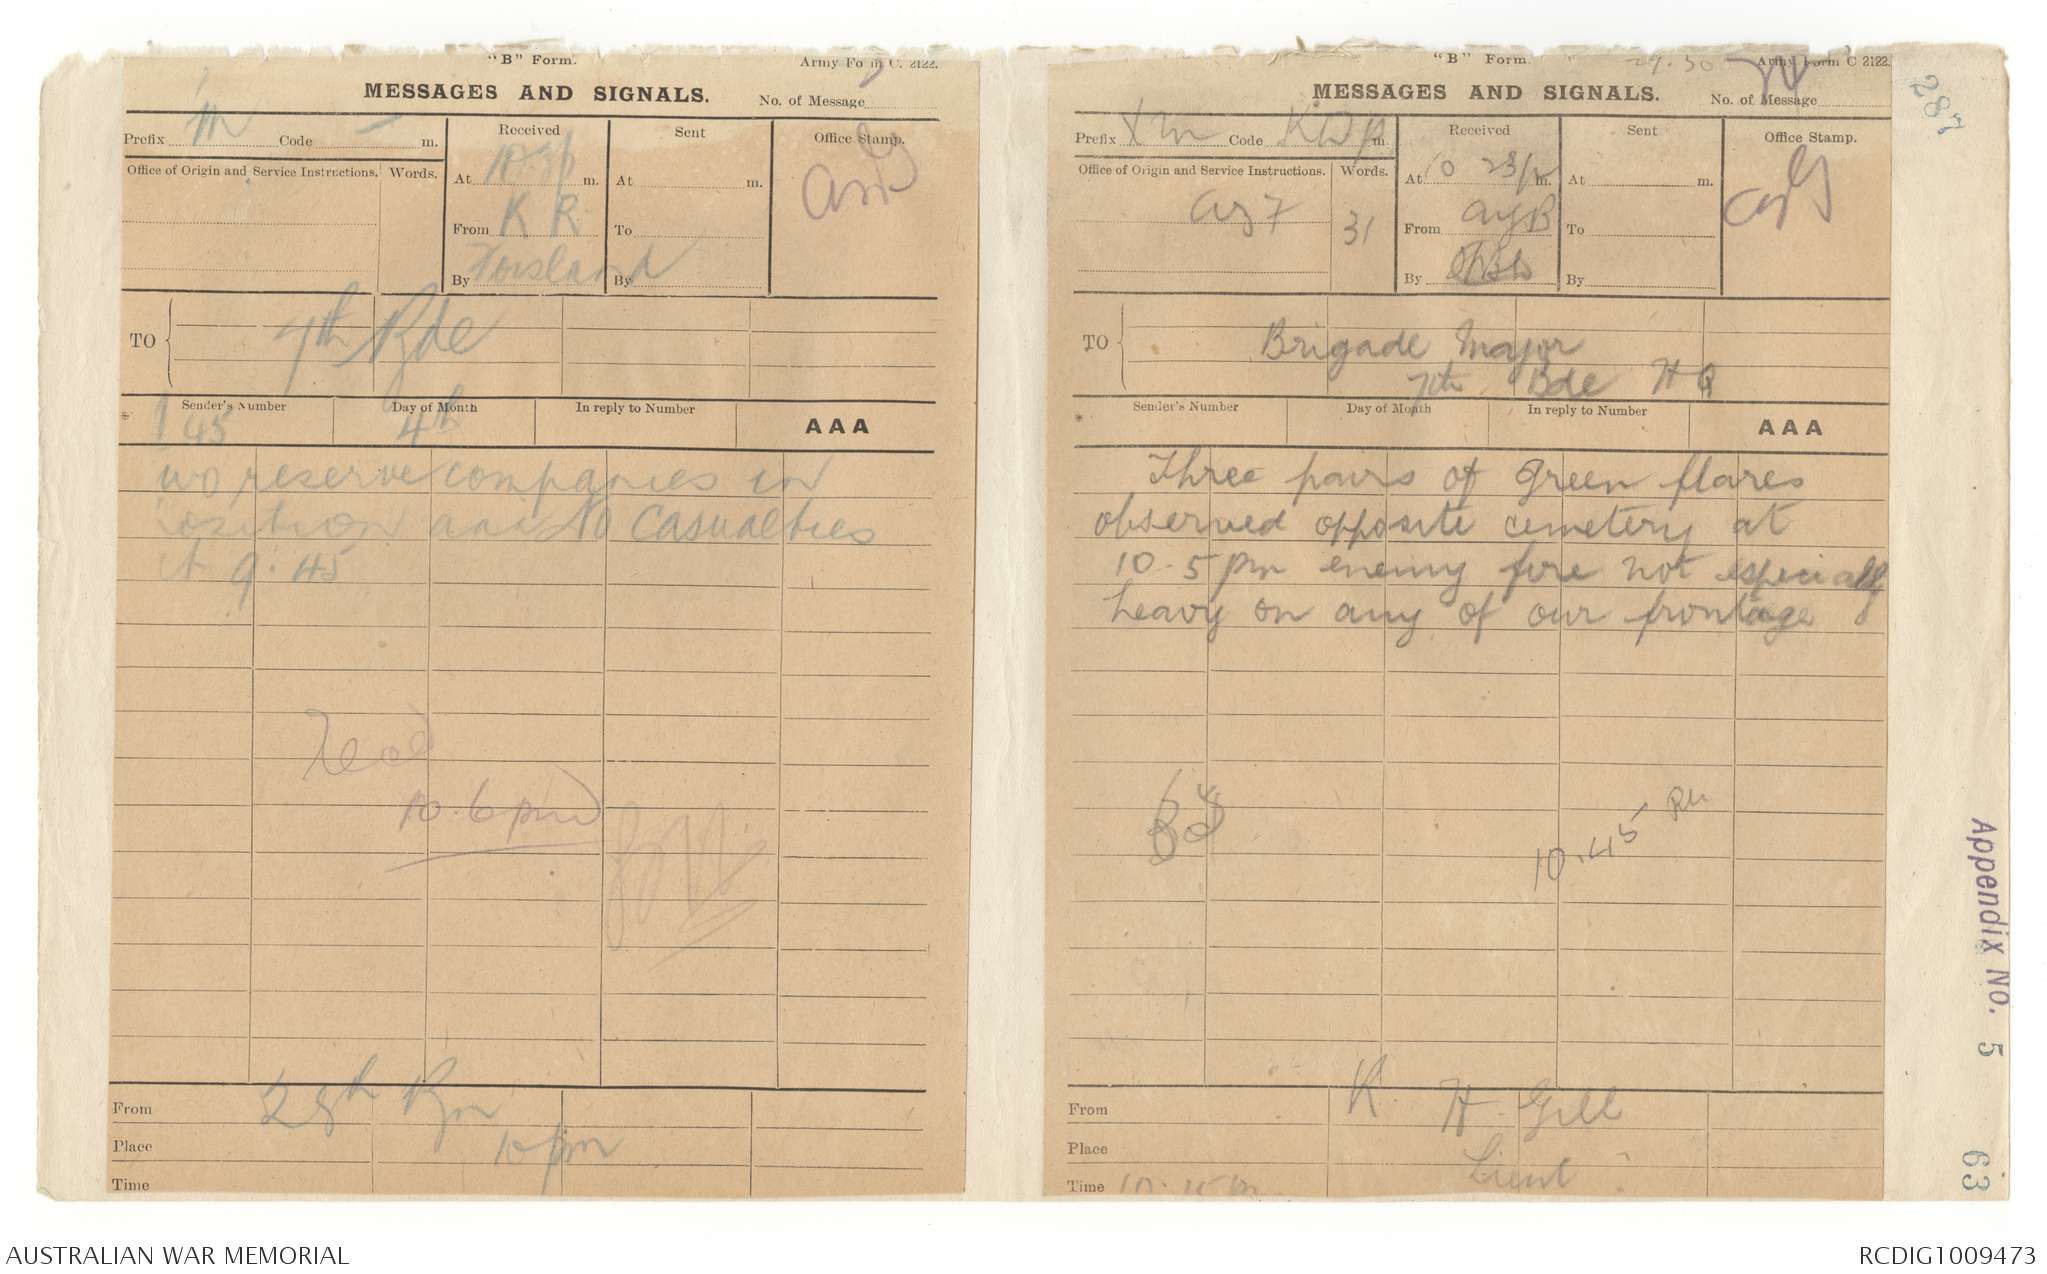 "B" Form. Army Form C. 2122.
MESSAGES AND SIGNALS. No. of Message
Prefix m Code m.
Received
Sent
Office Stamp.
Office of Origin and Service Instructions. Words.
At m.
From K R
By
At m.
To
By
TO 7th Bde
Sender's Number Day of Month In reply to Number AAA
45 4th
wo reserve companies in
position aaa No casualties
at 9.45
10.6 pm
From 28th Bn
Place 10 pm
Time
"B" Form. Army Form C 2122.
MESSAGES AND SIGNALS. No. of Message
287
Prefix m Code m.
Received
Sent
Office Stamp.
Office of Origin and Service Instructions. Words.
31
At 10 23p m.
From
By
At m.
To
By
TO Brigade Major
7th Bde H Q
Sender's Number Day of Month In reply to Number AAA
Three pairs of green flares
observed opposite cemetery at
10.5 pm enemy fire not especially
heavy on any of our frontage
10.45 PM
From K H Gill
Place Lieut
Time
Appendix No. 5 63
AUSTRALIAN WAR MEMORIAL RCDIG1009473